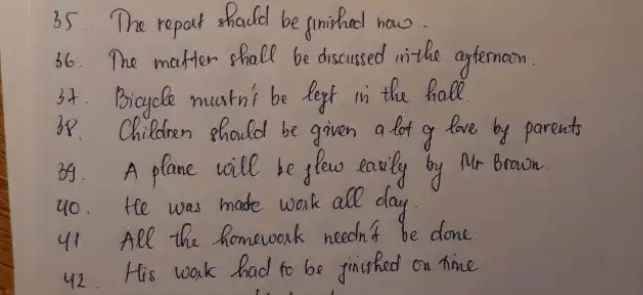 35 The report should be finished now.
36. The matter shall be discussed in the afternoon.
37. Bicycle mustn't be left in the hall.
38. Children should be given a lot of love by parents
39. A plane will be flew easily by Mr Brown.
40. He was made work all day.
41 All the homework needn't be done
42. His work had to be finished on time